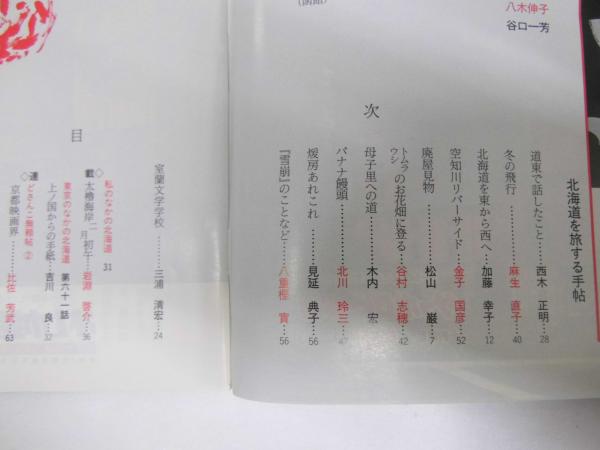 (函館)
八木伸子
谷口一芳
北海道を旅する手帖
目 次
道東で話したこと……西木 正明…28
冬の飛行……麻生 直子…40
北海道を東から西へ…加藤 幸子…12
空知川リバーサイド…金子 国彦…52
廃屋見物……松山 巌…7
トムラウシのお花畑に登る…谷村 志穂…42
母子里への道……木内 宏
バナナ饅頭……北川 玲三…47
煖房あれこれ……見延 典子…56
『雪崩』のことなど…八重樫 實…56
室蘭文学学校……三浦 清宏…24
◇連載◇
私のなかの北海道 31
太櫓海岸 二月初午…岩淵 啓介…36
東京のなかの北海道 第六十一話
上ノ国からの手紙…吉川 良…32
どさんこ無稽帖 ②
京都映画界……比佐 芳武…63